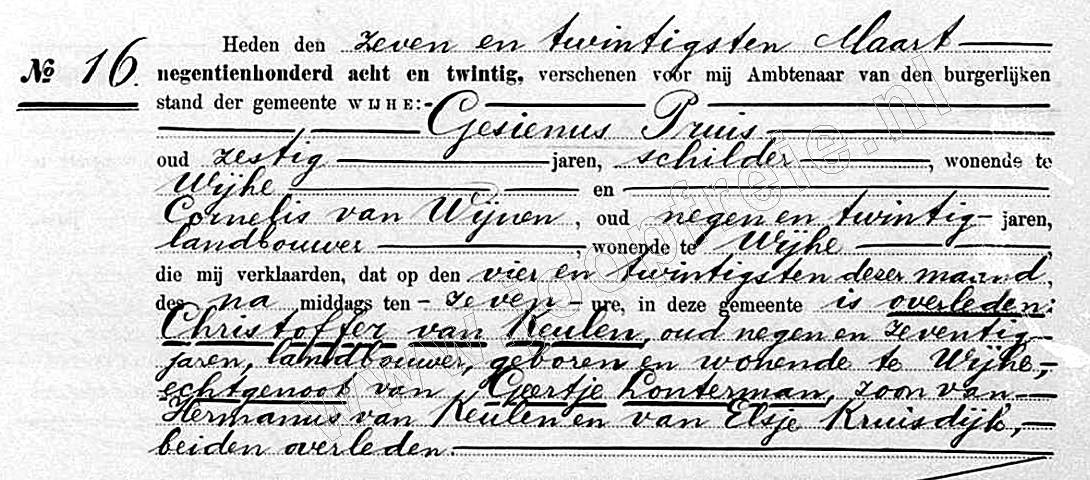 Heden den zeven en twintigsten Maart
№ 16. negentienhonderd acht en twintig, verschenen voor mij Ambtenaar van den burgerlijken
stand der gemeente WIJHE:-
Gesienus Pruis
oud zestig jaren, schilder, wonende te
Wijhe en
Cornelis van Wijnen, oud negen en twintig jaren,
landbouwer, wonende te Wijhe,
die mij verklaarden, dat op den vier en twintigsten dezer maand,
des na middags ten zeven ure, in deze gemeente is overleden:
Christoffer van Keulen, oud negen en zeventig
jaren, landbouwer, geboren en wonende te Wijhe,
echtgenoot van Geertje Lonterman, zoon van
Hermanus van Keulen en van Elsje Kruisdijk,
beiden overleden.